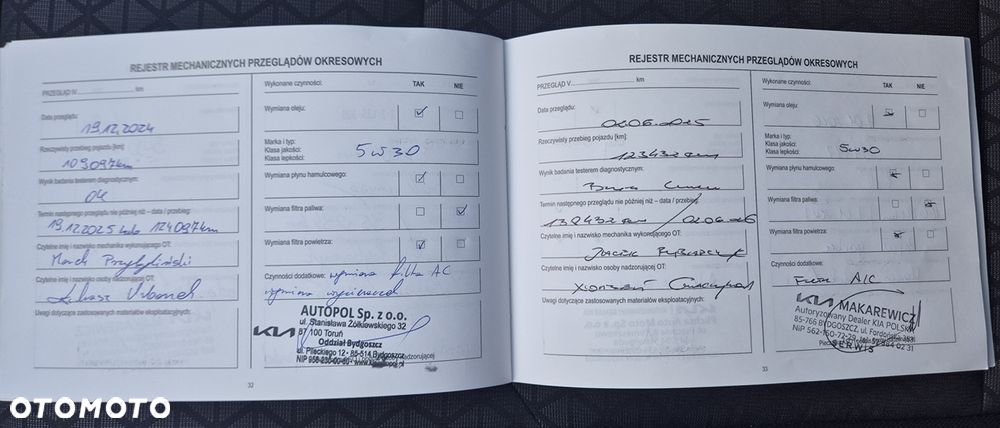 REJESTR MECHANICZNYCH PRZEGLĄDÓW OKRESOWYCH
PRZEGLĄD V km
Data przeglądu:
19.12.2024
Rzeczywisty przebieg pojazdu [km]:
109.097km
Wynik badania testerem diagnostycznym:
OK
Termin następnego przeglądu nie później niż – data / przebieg:
19.12.2025 lub 124097km
Czytelne imię i nazwisko mechanika wykonującego OT:
Marek
Czytelne imię i nazwisko osoby nadzorującej OT:
Łukasz Urbanek
Uwagi dotyczące zastosowanych materiałów eksploatacyjnych:
Wykonane czynności: TAK NIE
Wymiana oleju:
Marka i typ:
Klasa jakości:
Klasa lepkości:
5W30
Wymiana płynu hamulcowego:
Wymiana filtra paliwa:
Wymiana filtra powietrza:
Czynności dodatkowe: wymiana filtra AC
wymiana wycieraczek
AUTOPOL Sp. z o.o.
ul. Stanisława Żółkiewskiego 32
87-100 Toruń
Oddział Bydgoszcz
ul. Plieckiego 12 - 85-514 Bydgoszcz
KIA
32
REJESTR MECHANICZNYCH PRZEGLĄDÓW OKRESOWYCH
PRZEGLĄD V km
Data przeglądu:
02.06.2025
Rzeczywisty przebieg pojazdu [km]:
123432 km
Wynik badania testerem diagnostycznym:
Termin następnego przeglądu nie później niż – data / przebieg:
138432 km / 02.06.26
Czytelne imię i nazwisko mechanika wykonującego OT:
Jacek
Czytelne imię i nazwisko osoby nadzorującej OT:
Uwagi dotyczące zastosowanych materiałów eksploatacyjnych:
Wykonane czynności: TAK NIE
Wymiana oleju:
Marka i typ:
Klasa jakości:
Klasa lepkości:
5W30
Wymiana płynu hamulcowego:
Wymiana filtra paliwa:
Wymiana filtra powietrza:
Czynności dodatkowe:
Filtr A/C
KIA MAKAREWICZ
Autoryzowany Dealer KIA POLSKA
85-766 BYDGOSZCZ, ul. Fordońska 353
SERWIS
33
OTOMOTO